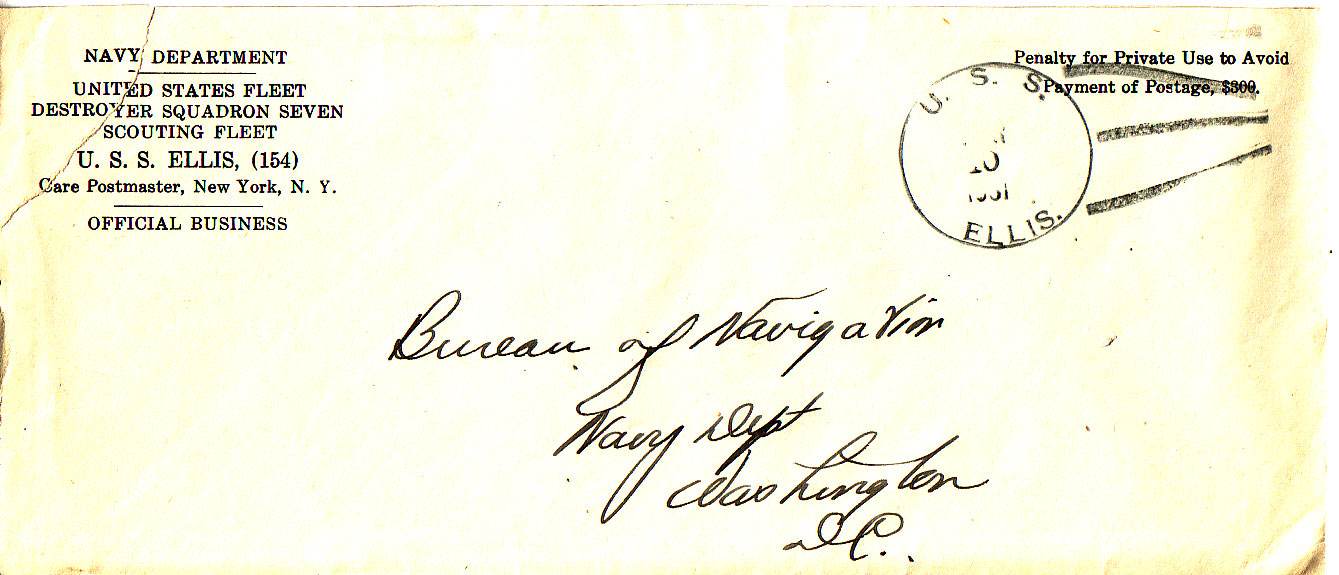 NAVY DEPARTMENT
UNITED STATES FLEET
DESTROYER SQUADRON SEVEN
SCOUTING FLEET
U. S. S. ELLIS, (154)
Care Postmaster, New York, N. Y.
OFFICIAL BUSINESS
Penalty for Private Use to Avoid
Payment of Postage, $300.
U. S. S.
10
1931
ELLIS.
Bureau of Navigation
Navy Dept
Washington
D.C.